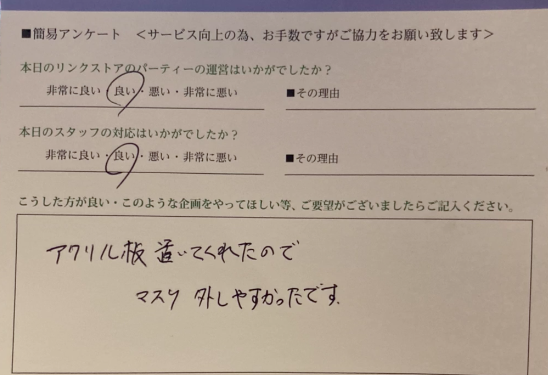 ■簡易アンケート ＜サービス向上の為、お手数ですがご協力をお願い致します＞
本日のリンクストアのパーティーの運営はいかがでしたか？
非常に良い・良い・悪い・非常に悪い ■その理由
本日のスタッフの対応はいかがでしたか？
非常に良い・良い・悪い・非常に悪い ■その理由
こうした方が良い・このような企画をやってほしい等、ご要望がございましたらご記入ください。
アクリル板 置いてくれたので
マスク 外しやすかったです.